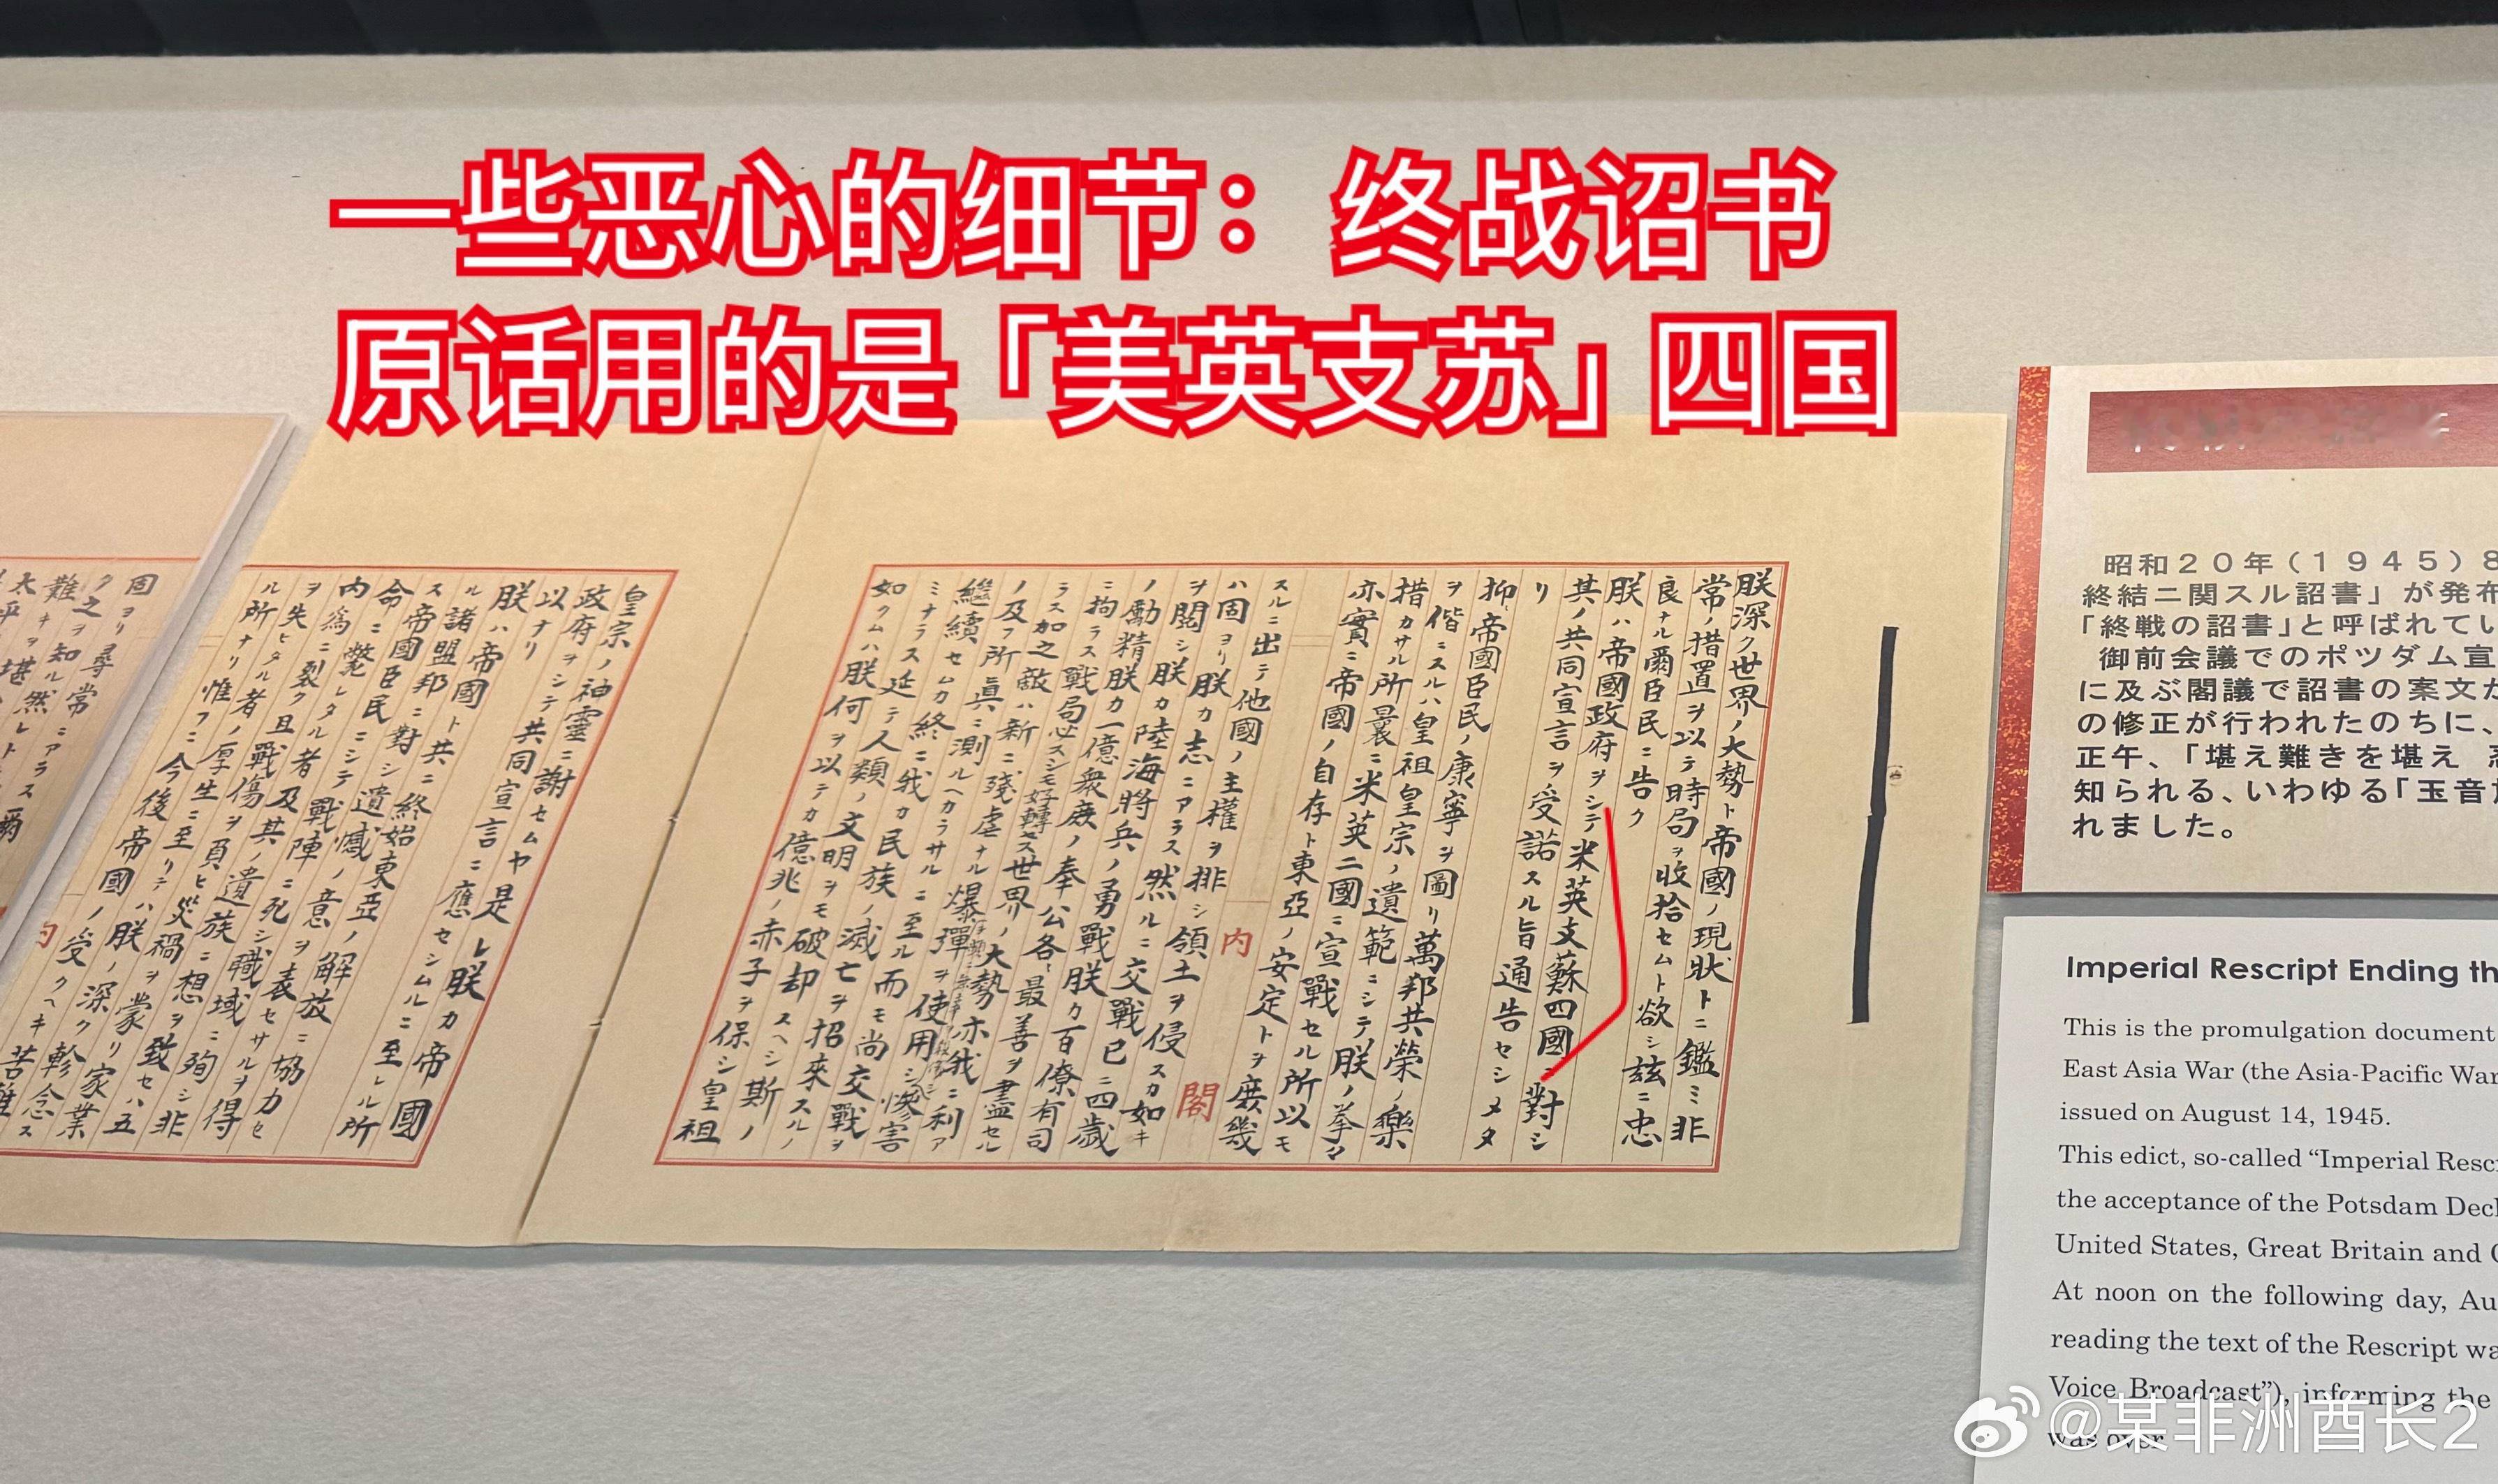 一些恶心的细节：终战诏书
原话用的是「美英支苏」四国
朕深ク世界ノ大勢ト帝國ノ現狀トニ鑑ミ非
常ノ措置ヲ以テ時局ヲ收拾セムト欲シ茲ニ忠
良ナル爾臣民ニ告ク
朕ハ帝國政府ヲシテ米英支蘇四國ニ對シ
其ノ共同宣言ヲ受諾スル旨通告セシメタ
リ
抑〻帝國臣民ノ康寧ヲ圖リ萬邦共榮ノ樂
ヲ偕ニスルハ皇祖皇宗ノ遺範ニシテ朕ノ拳〻
措カサル所曩ニ米英二國ニ宣戰セル所以モ
亦實ニ帝國ノ自存ト東亞ノ安定トヲ庶幾
スルニ出テ他國ノ主權ヲ排シ領土ヲ侵スカ如キ
內閣
ハ固ヨリ朕カ志ニアラス然ルニ交戰已ニ四歲
ヲ閲シ朕カ陸海將兵ノ勇戰朕カ百僚有司
ノ勵精朕カ一億衆庶ノ奉公各〻最善ヲ盡セル
ニ拘ラス戰局必スシモ好轉セス世界ノ大勢亦我ニ利ア
ラス加之敵ハ新ニ殘虐ナル爆彈ヲ使用シ慘害
ノ及フ所眞ニ測ルヘカラサルニ至ル而モ尚交戰ヲ
繼續セムカ終ニ我カ民族ノ滅亡ヲ招來スルノ
ミナラス延テ人類ノ文明ヲモ破却スヘシ斯ノ
如クムハ朕何ヲ以テカ億兆ノ赤子ヲ保シ皇祖
皇宗ノ神靈ニ謝セムヤ是レ朕カ帝國
政府ヲシテ共同宣言ニ應セシムルニ至レル所
以ナリ
朕ハ帝國ト共ニ終始東亞ノ解放ニ協力セ
ル諸盟邦ニ對シ遺憾ノ意ヲ表セサルヲ得
ス帝國臣民ニシテ戰陣ニ死シ職域ニ殉シ非
命ニ斃レタル者及其ノ遺族ニ想ヲ致セハ五
內爲ニ裂ク且戰傷ヲ負ヒ災禍ヲ蒙リ家業
ヲ失ヒタル者ノ厚生ニ至リテハ朕ノ深ク軫念ス
ル所ナリ惟フニ今後帝國ノ受クヘキ苦難
內
固ヨリ尋常ニアラス爾
之ヲ知ル然レト
難キヲ堪
太平
昭和２０年（１９４５）８
終結ニ関スル詔書」が発布
「終戦の詔書」と呼ばれてい
御前会議でのポツダム宣
に及ぶ閣議で詔書の案文が
の修正が行われたのちに、
正午、「堪え難きを堪え 忍
知られる、いわゆる「玉音放
れました。
Imperial Rescript Ending th
This is the promulgation document
East Asia War (the Asia-Pacific War
issued on August 14, 1945.
This edict, so-called “Imperial Resc
the acceptance of the Potsdam Decl
United States, Great Britain and
At noon on the following day, Au
reading the text of the Rescript wa
Voice Broadcast”), informing the
was over.
@某非洲酋长2